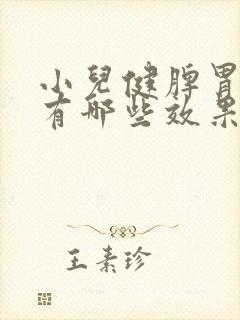 小兒健脾胃
有哪些效果
王素珍